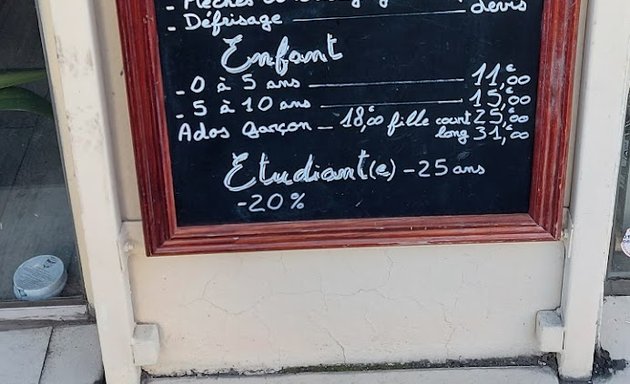 - Mèches
- Défrisage Devis
Enfant
- 0 à 5 ans 11,€00
- 5 à 10 ans 15,€00
Ados Garçon - 18,€00 fille court 25,€00
long 31,€00
Etudiant(e) - 25 ans
- 20 %